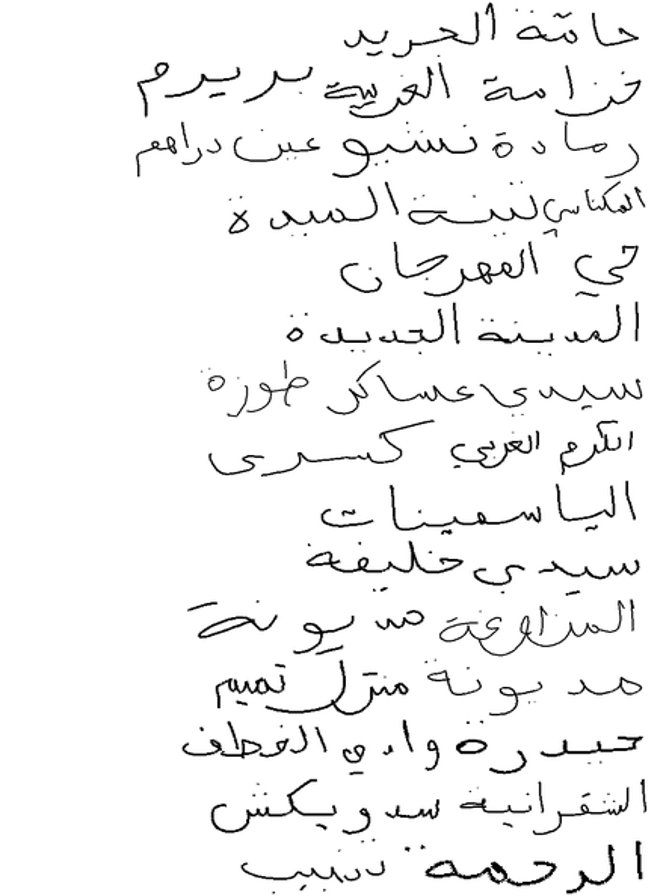 حامة الجريد
خزامة الغربية بريرم
رمادة نشبو عين دراهم
المكناسي تينة السيدة
حي المهرجان
المدينة الجديدة
سيدي عساكر طوزة
الكرم الغربي كسرى
الياسمينات
سيدي خليفة
المزاوغة مديونة
مديونة منزل تميم
حيدرة وادي الخطف
الشقرانية سدويكش
الرحمة